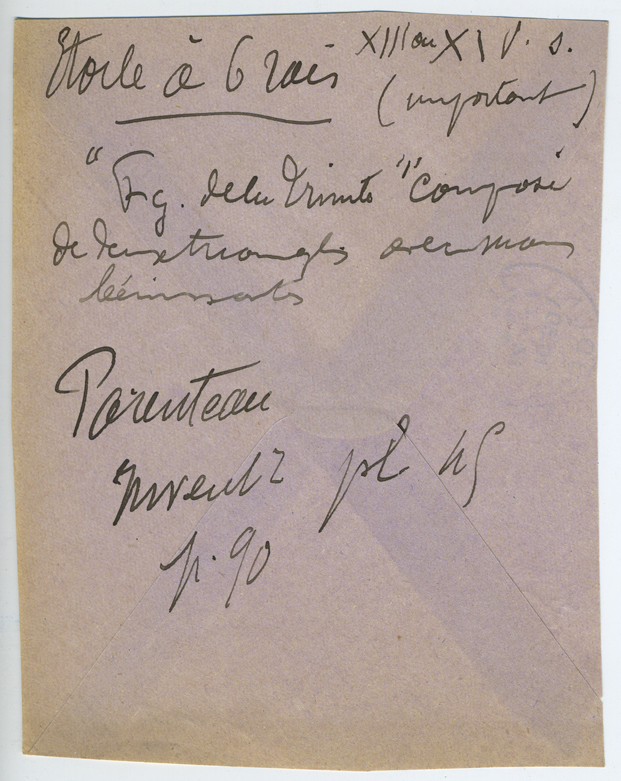 Etoile à 6 rais XIII ou XIV. s.
(important)
"Fg. de la Trinité" composé
de deux triangles avec mains
bénissantes
Parenteau
Invent pl 45
p. 90